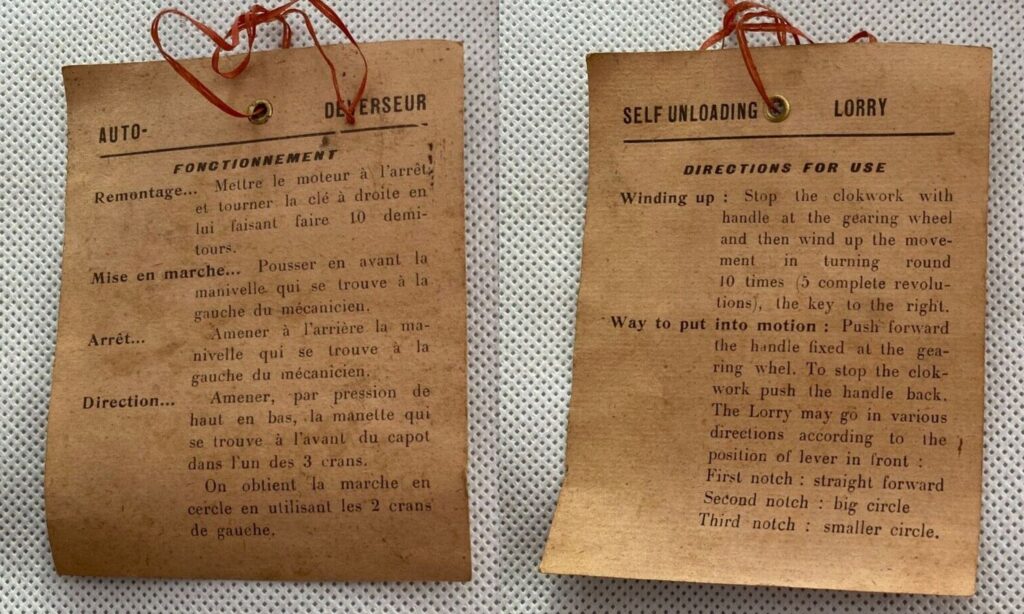 AUTO- DEVERSEUR
FONCTIONNEMENT
Remontage... Mettre le moteur à l'arrêt
et tourner la clé à droite en
lui faisant faire 10 demi-
tours.
Mise en marche... Pousser en avant la
manivelle qui se trouve à la
gauche du mécanicien.
Arrêt... Amener à l'arrière la ma-
nivelle qui se trouve à la
gauche du mécanicien.
Direction... Amener, par pression de
haut en bas, la manette qui
se trouve à l'avant du capot
dans l'un des 3 crans.
On obtient la marche en
cercle en utilisant les 2 crans
de gauche.
SELF UNLOADING LORRY
DIRECTIONS FOR USE
Winding up : Stop the clokwork with
handle at the gearing wheel
and then wind up the move-
ment in turning round
10 times (5 complete revolu-
tions), the key to the right.
Way to put into motion : Push forward
the handle fixed at the gea-
ring whel. To stop the clok-
work push the handle back.
The Lorry may go in various
directions according to the
position of lever in front :
First notch : straight forward
Second notch : big circle
Third notch : smaller circle.